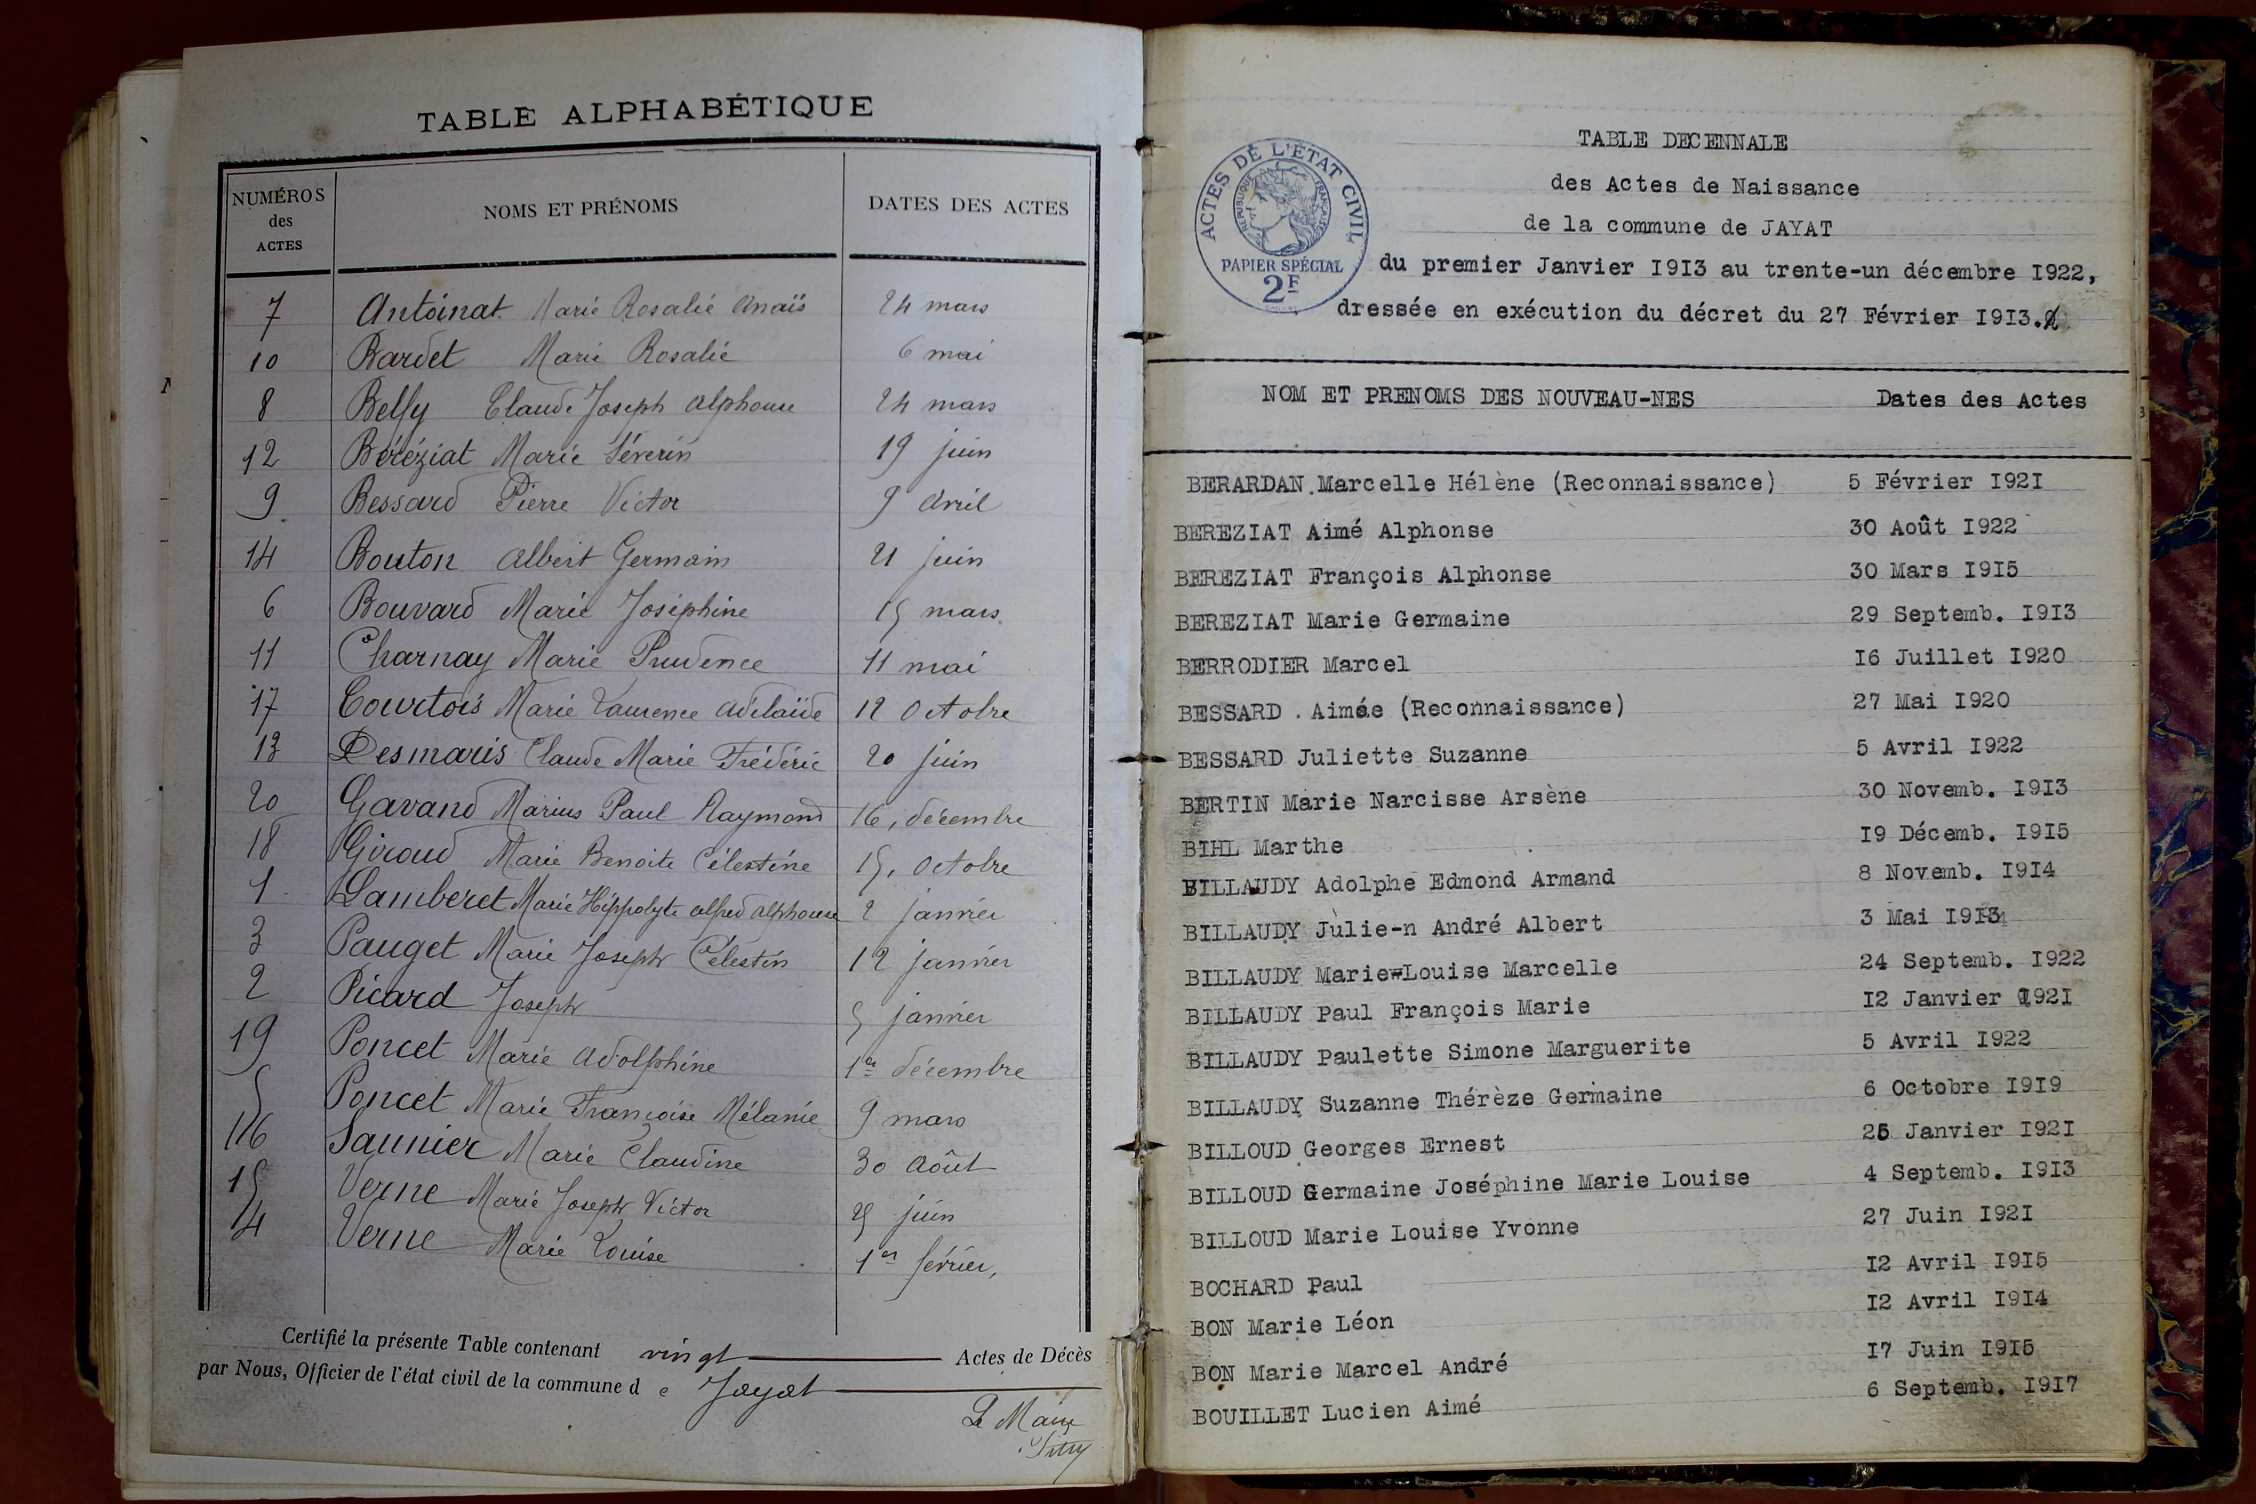 TABLE ALPHABÉTIQUE
NUMÉROS des ACTES NOMS ET PRÉNOMS DATES DES ACTES
7 Antoinat Marie Rosalie Anaïs 24 mars
10 Bardet Marie Rosalie 6 mai
8 Belfy Claude Joseph Alphonse 24 mars
12 Béréziat Marie Séverin 19 juin
9 Bessard Pierre Victor 9 avril
14 Bouton Albert Germain 21 juin
6 Bouvard Marie Joséphine 15 mars
11 Charnay Marie Prudence 11 mai
17 Courtois Marie Laurence Adélaïde 12 octobre
13 Desmaris Claude Marie Frédéric 20 juin
20 Gavand Marius Paul Raymond 16, décembre
18 Giroud Marie Benoite Célestine 15, octobre
1 Lamberet Marie Hippolyte Alfred Alphonse 2 janvier
3 Pauget Marie Joseph Célestin 12 janvier
2 Picard Joseph 5 janvier
19 Poncet Marie Adolphine 1er décembre
5 Poncet Marie Françoise Mélanie 9 mars
16 Saunier Marie Claudine 30 août
15 Verne Marie Joseph Victor 25 juin
4 Verne Marie Louise 1er février,
Certifié la présente Table contenant vingt Actes de Décès
par Nous, Officier de l'état civil de la commune d e Jayat
Le Maire
ACTES DE L'ÉTAT CIVIL
RÉPUBLIQUE FRANÇAISE
PAPIER SPÉCIAL
2F
TABLE DECENNALE
des Actes de Naissance
de la commune de JAYAT
du premier Janvier I9I3 au trente-un décembre I922,
dressée en exécution du décret du 27 Février I9I3.
NOM ET PRENOMS DES NOUVEAU-NES Dates des Actes
BERARDAN.Marcelle Hélène (Reconnaissance) 5 Février I92I
BEREZIAT Aimé Alphonse 30 Août I922
BEREZIAT François Alphonse 30 Mars I9I5
BEREZIAT Marie Germaine 29 Septemb. I9I3
BERRODIER Marcel I6 Juillet I920
BESSARD . Aimée (Reconnaissance) 27 Mai I920
BESSARD Juliette Suzanne 5 Avril I922
BERTIN Marie Narcisse Arsène 30 Novemb. I9I3
BIHL Marthe I9 Décemb. I9I5
BILLAUDY Adolphe Edmond Armand 8 Novemb. I9I4
BILLAUDY Julie-n André Albert 3 Mai I9I3
BILLAUDY Marie-Louise Marcelle 24 Septemb. I922
BILLAUDY Paul François Marie I2 Janvier I92I
BILLAUDY Paulette Simone Marguerite 5 Avril I922
BILLAUDY Suzanne Thérèze Germaine 6 Octobre I9I9
BILLOUD Georges Ernest 25 Janvier I92I
BILLOUD Germaine Joséphine Marie Louise 4 Septemb. I9I3
BILLOUD Marie Louise Yvonne 27 Juin I92I
BOCHARD Paul I2 Avril I9I5
BON Marie Léon I2 Avril I9I4
BON Marie Marcel André I7 Juin I9I5
BOUILLET Lucien Aimé 6 Septemb. I9I7